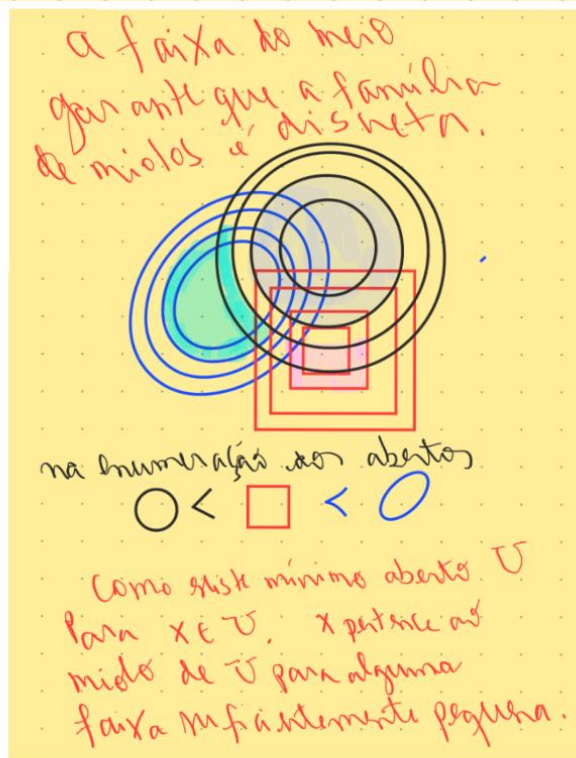 a faixa do meio
garante que a família
de miolos é discreta.
na enumeração dos abertos
<
<
Como existe mínimo aberto U
para x ∈ U, x pertence ao
miolo de U para alguma
faixa suficientemente pequena.